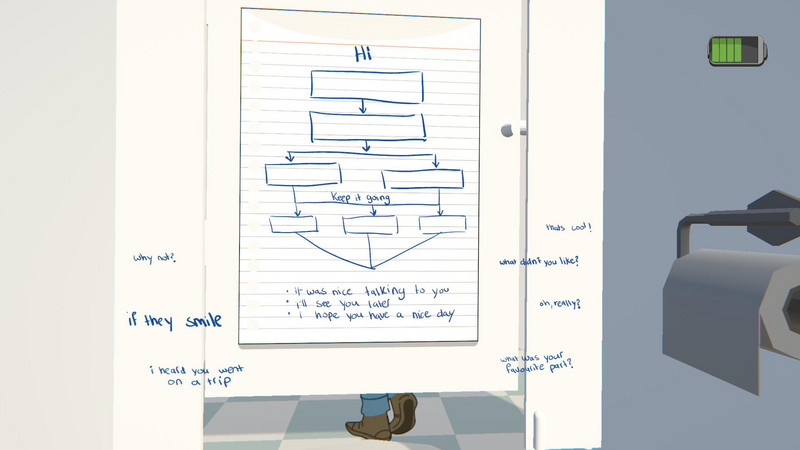 Hi
Keep it going
• it was nice talking to you
• i'll see you later
• i hope you have a nice day
why not?
if they smile
i heard you went
on a trip
thats cool!
what didn't you like?
oh, really?
what was your
favourite part?